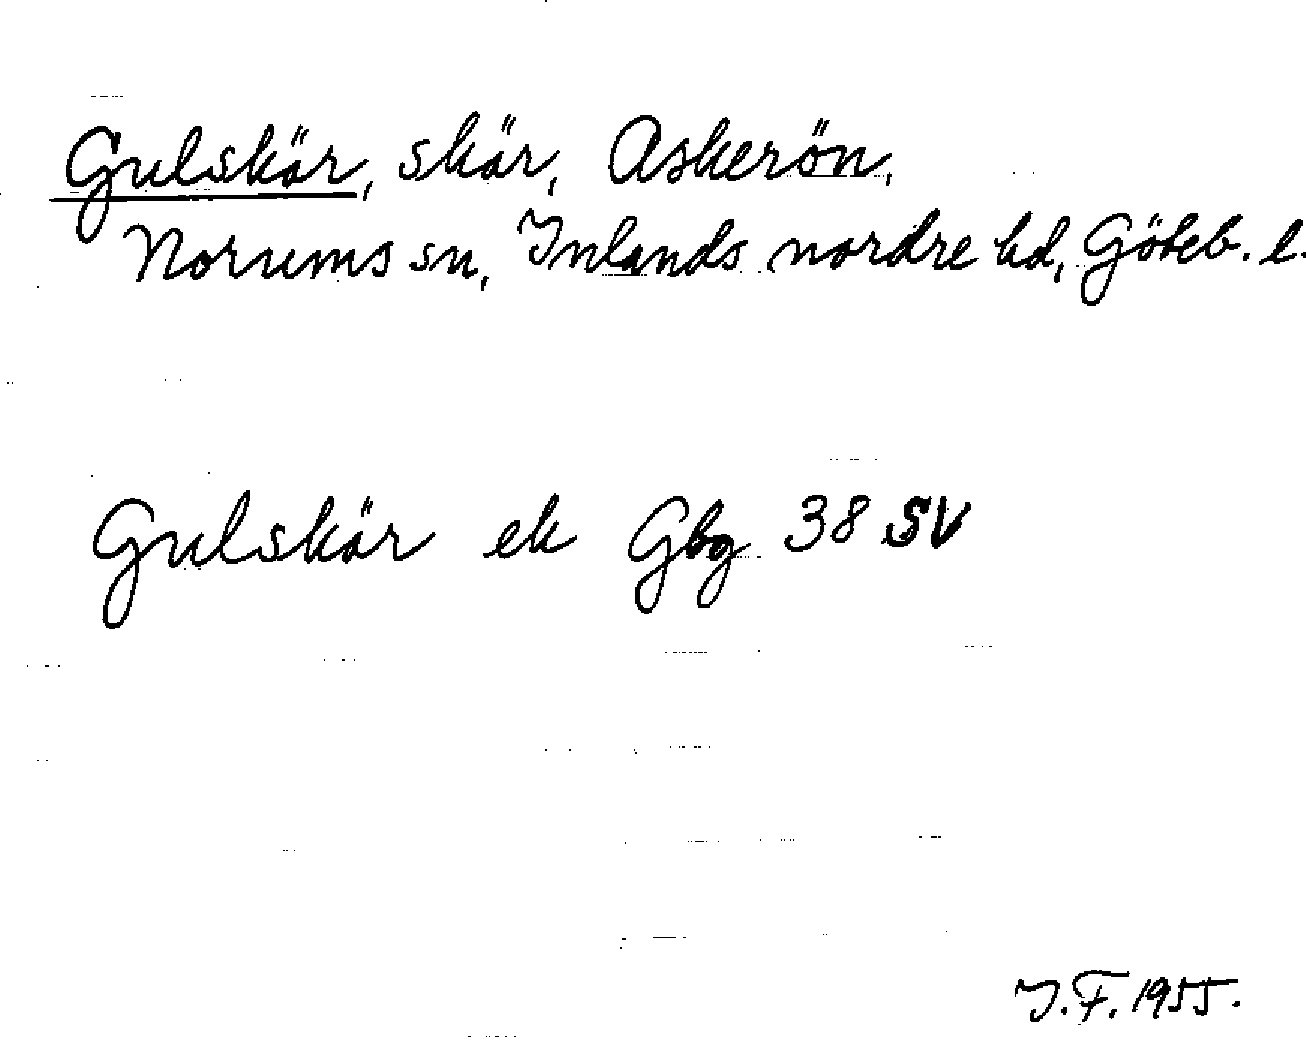 Gulskär, skär, Askerön,
Norums sn, Inlands nordre hd, Göteb. l.
Gulskär ek Gbg 38 SV
I.F. 1955.